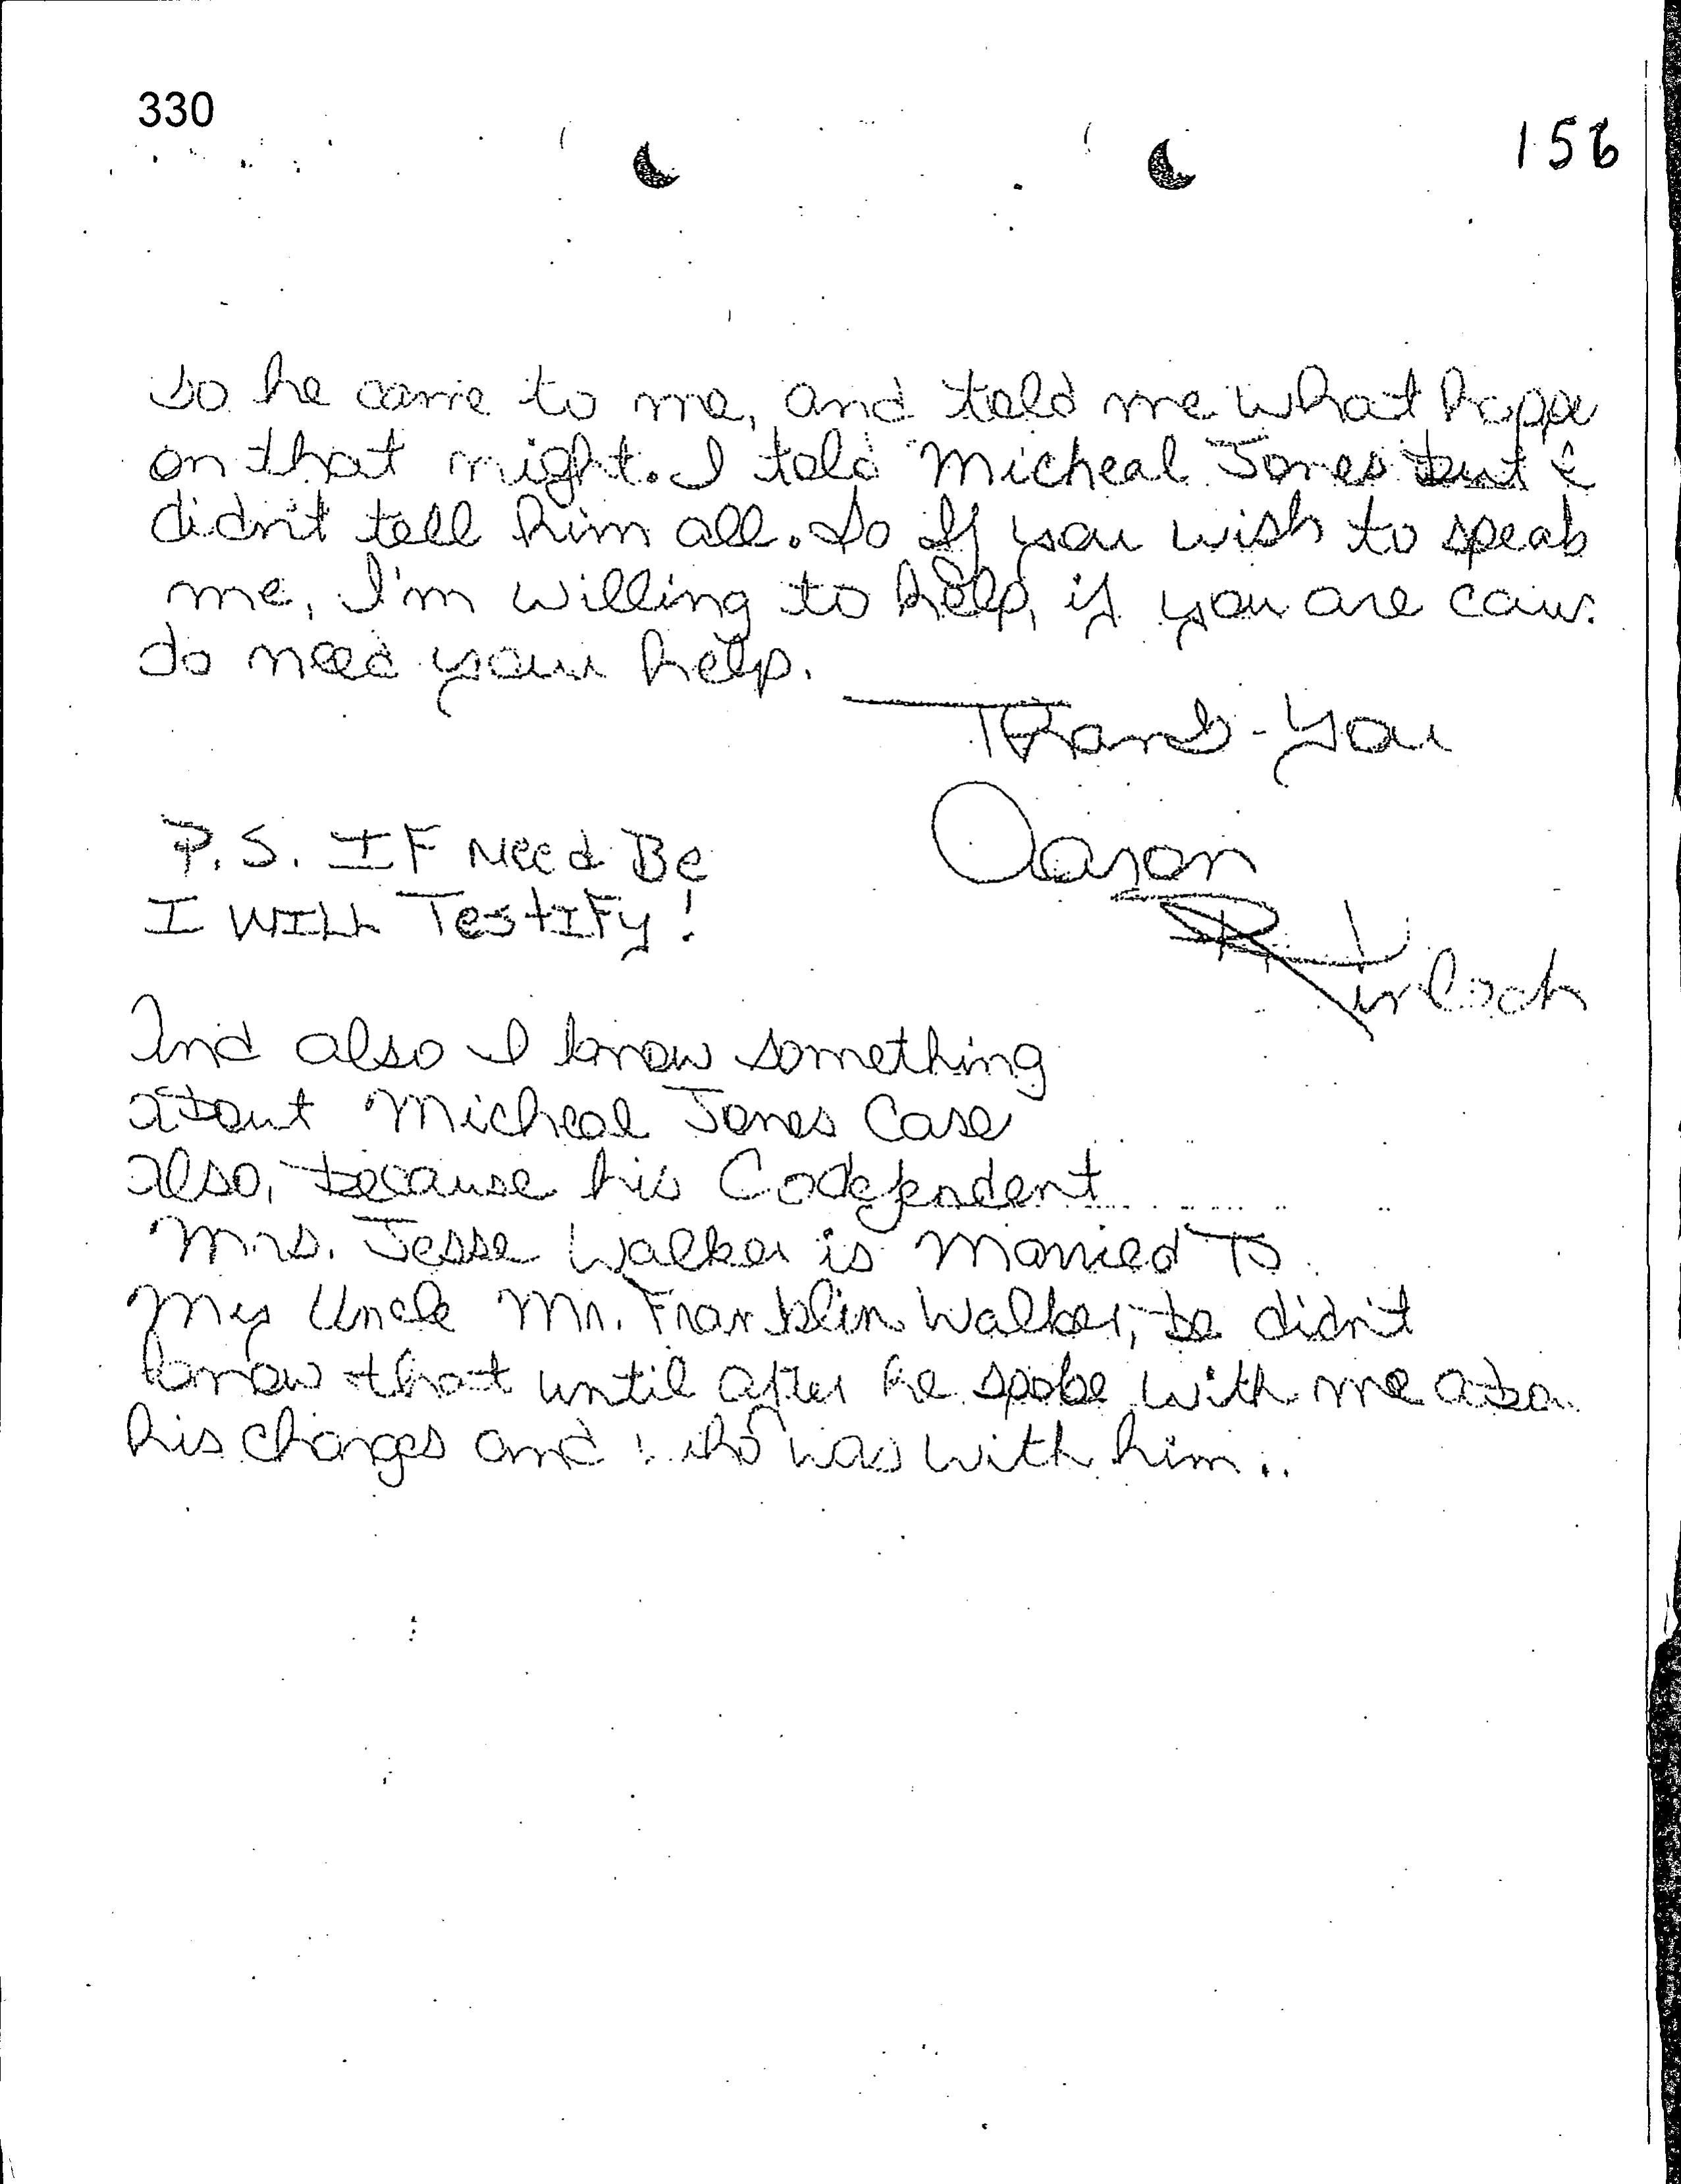 330
156
So he came to me, and told me what happe
on that night. I told Micheal Jones but I
didn't tell him all. So If you wish to speak
me, I'm willing to help, if you are caus.
do need your help.
Thank-You
P.S. IF Need Be
I WILL Testify!
Aaron
Kinloch
And also I know something
about Micheal Jones Case
also, because his Codependent
Mrs. Jesse Walker is Married To
My Uncle Mr. Franklin Walker, he didn't
know that until after he spoke with me abou
his charges and who was with him..